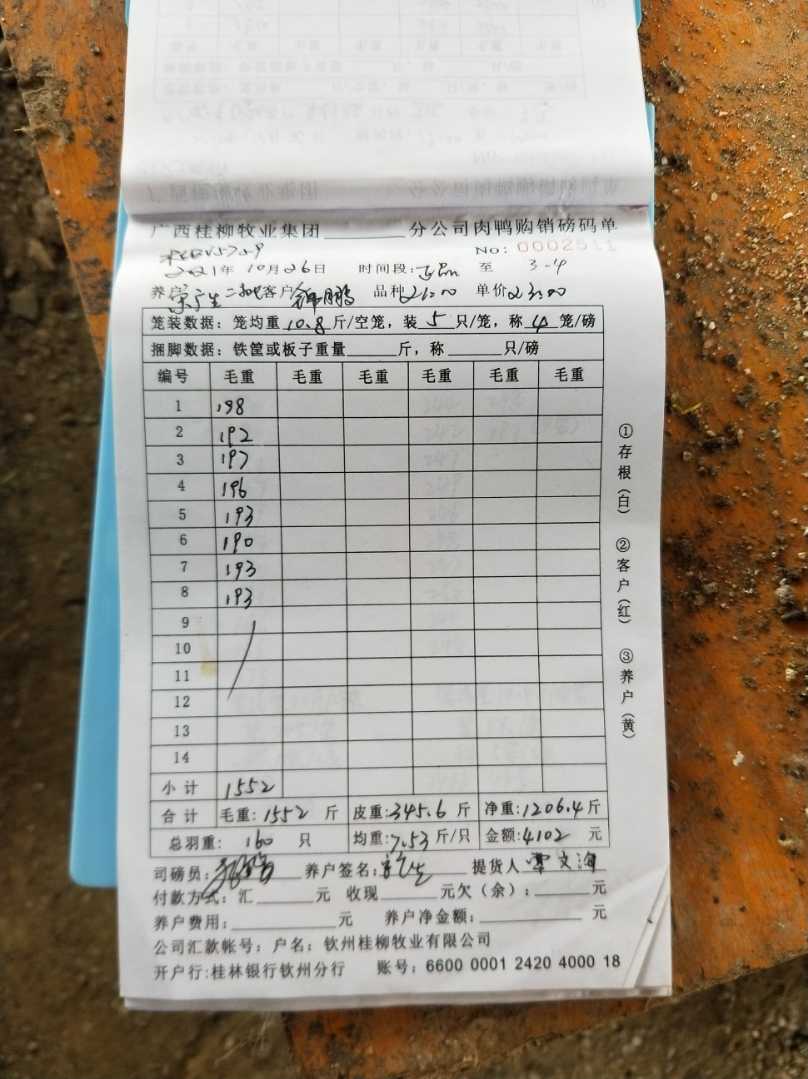 广西桂柳牧业集团________分公司肉鸭购销磅码单
No: 0002511
2021年 10月26日 时间段: 至 3-4
养户: 二批 客户: 鹏 品种 单价
笼装数据: 笼均重 10.8 斤/空笼, 装 5 只/笼, 称 4 笼/磅
捆脚数据: 铁筐或板子重量______斤, 称______只/磅
编号 毛重 毛重 毛重 毛重 毛重 毛重
1 198
2 192
3 197
4 196
5 193
6 190
7 193
8 193
9
10
11
12
13
14
小计 1552
合计 毛重: 1552 斤 皮重: 345.6 斤 净重: 1206.4 斤
总羽重: 160 只 均重: 7.53 斤/只 金额: 4102 元
司磅员: 养户签名: 提货人 文海
付款方式: 汇______元 收现______元欠(余): ______元
养户费用: ______元 养户净金额: ______元
公司汇款帐号: 户名: 钦州桂柳牧业有限公司
开户行: 桂林银行钦州分行 账号: 6600 0001 2420 4000 18
①存根(白) ②客户(红) ③养户(黄)